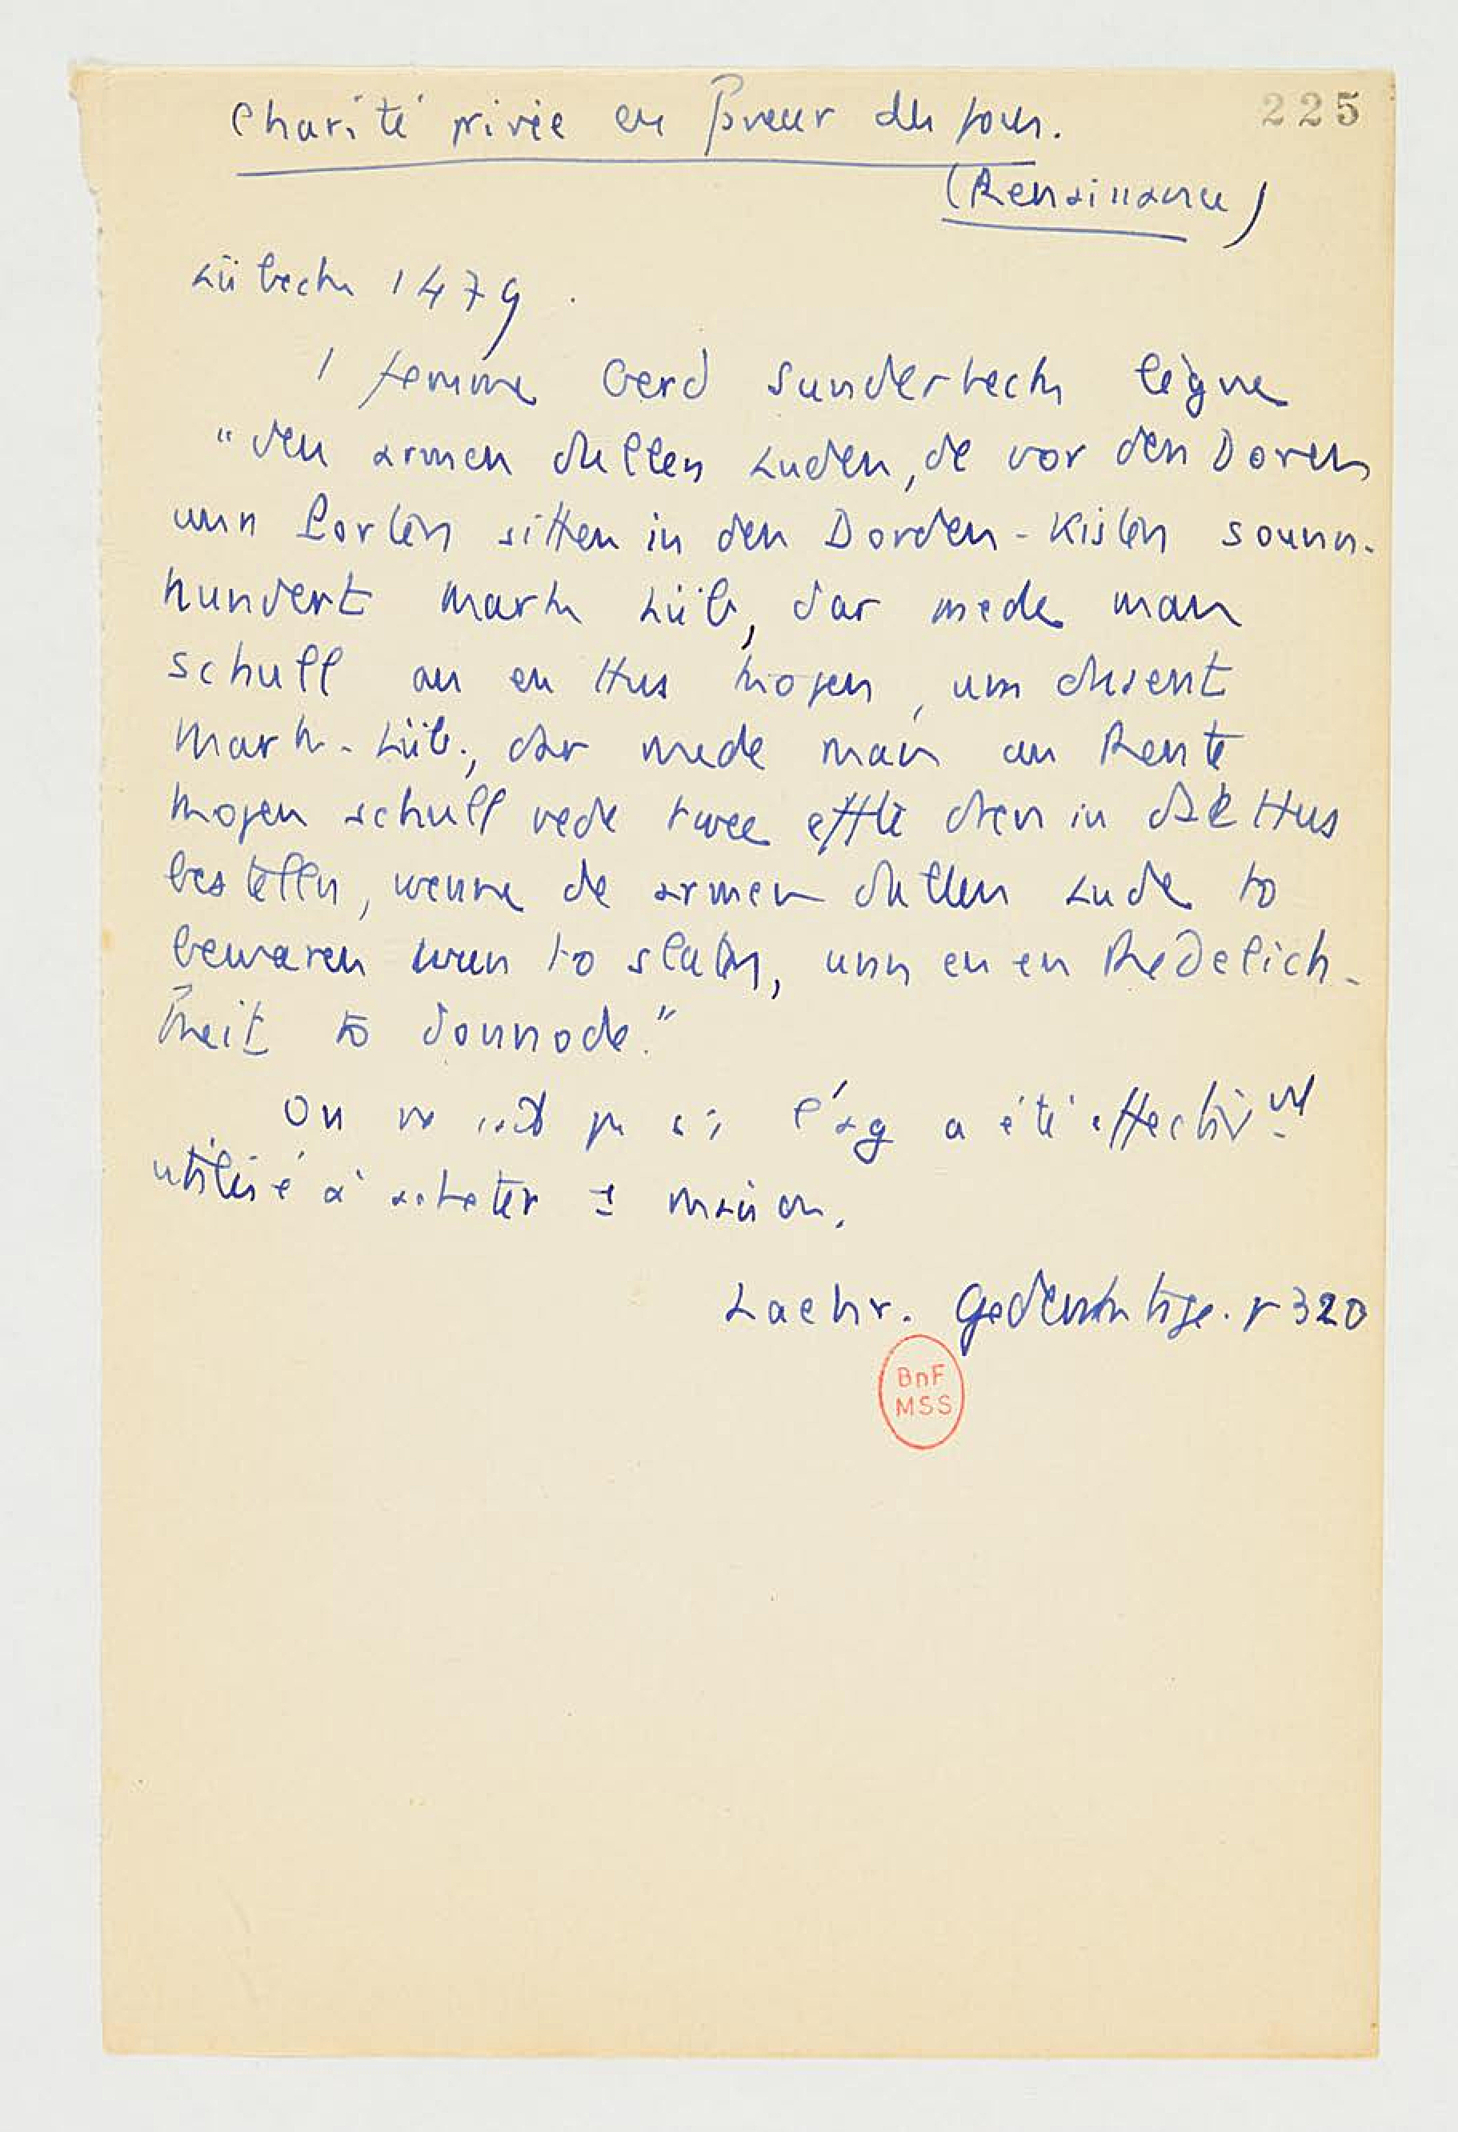 Charité privée en faveur des fous.
225
(Renaissance)
Lübeck 1479.
1 femme Gerd Sunderbeck lègue
"den armen dullen Luden, de vor den Doren
unn Porten sitten in den Dorden-Kisten sounn-
hundert Mark Lüb, dar mede man
schull an en Hus kopen, um dusent
Mark-Lüb., dar mede man an Rente
kopen schull vede twee effte dren in dat Hus
bestelln, wenne de armen dullen Lude to
bewaren unn to slutn, unn en en Redelich-
heit to donnode."
On ne sait pas si l'arg a été effectivt
utilisé à acheter 1 maison.
Laehr. Gedenktage. p 320
BnF
MSS